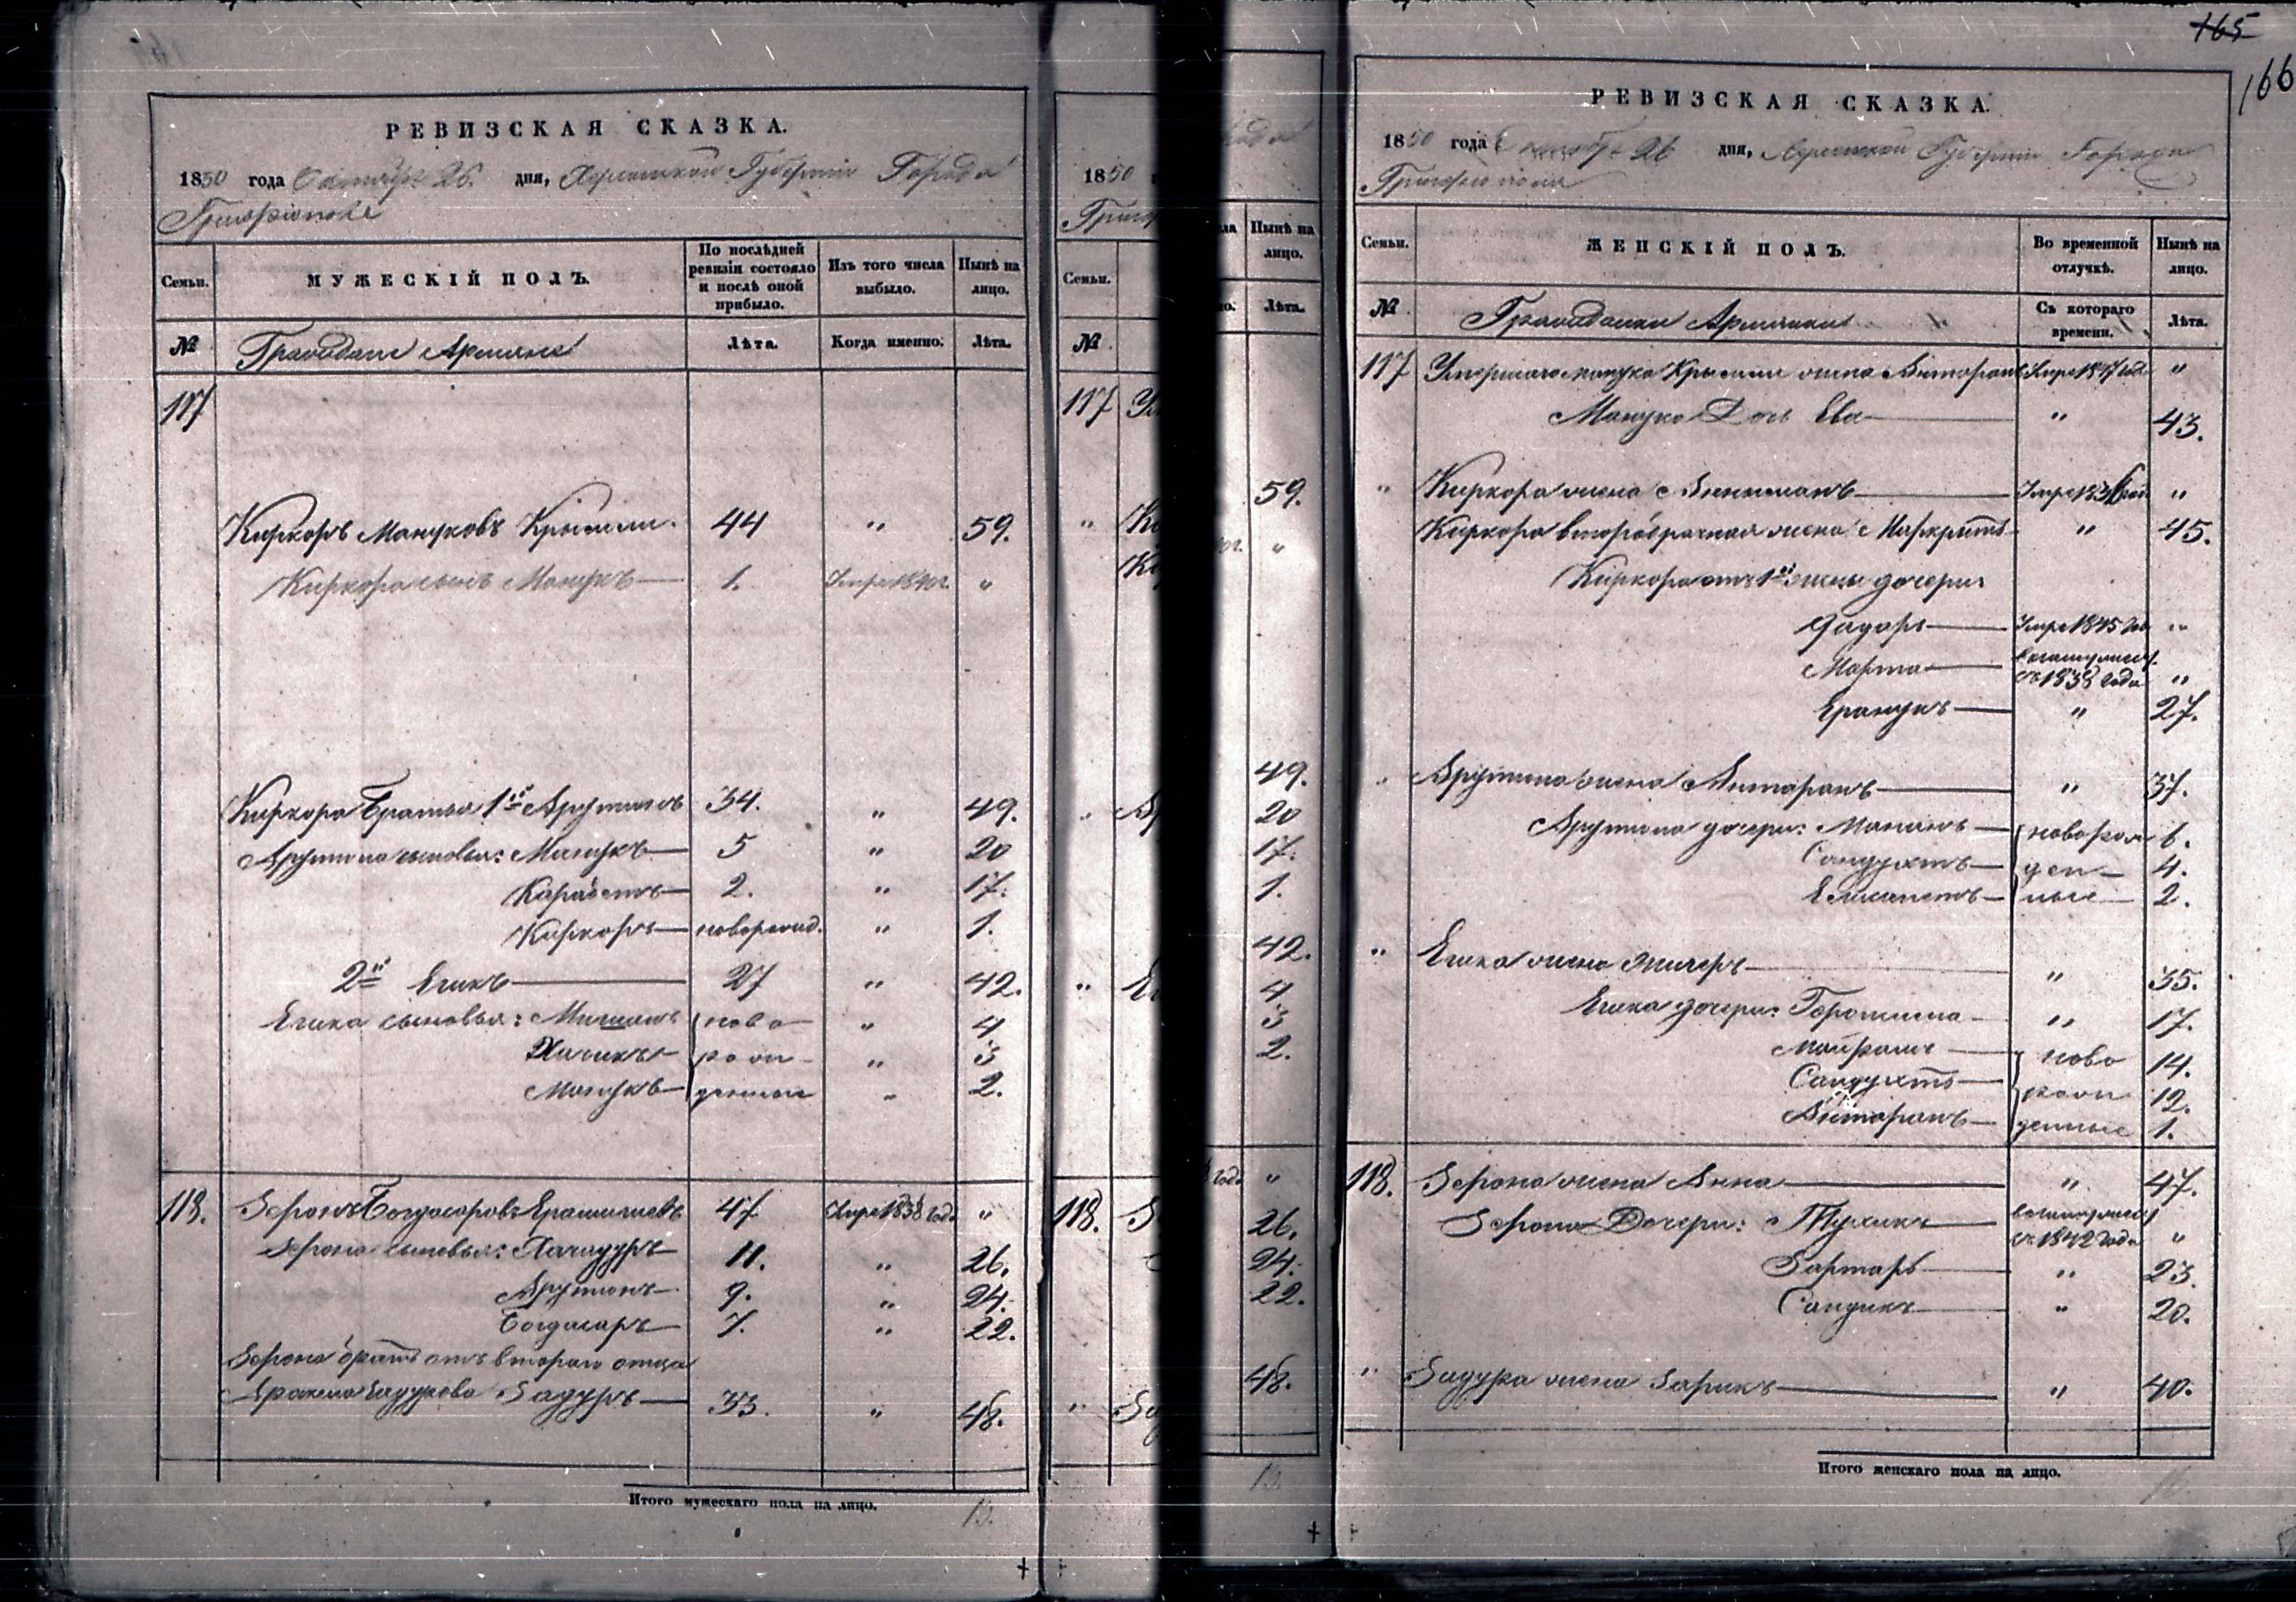 РЕВИЗСКАЯ СКАЗКА.
1850 года Октября 26. дня, Херсонской Губернiи Города
Григорiополя
Семьи. МУЖЕСКIЙ ПОЛЪ. По послѣдней ревизiи состояло и послѣ оной прибыло. Изъ того числа выбыло. Нынѣ на лицо.
№ Граждане Армяне Лѣта. Когда именно. Лѣта.
117
Киркоръ Мануковъ Крымли. 44 " 59.
Киркора сынъ Манукъ 1. Умре 1840г. "
Киркора Братья 1й Арутинъ 34. " 49.
Арутина сыновья: Манукъ 5 " 20
Карабетъ 2. " 17.
Киркоръ новорожд. " 1.
2й Егикъ 27 " 42.
Егика сыновья: ново " 4
рож " 3
Манукъ денные " 2.
118. Зеронъ Богдасаровъ 47. Умре 1838 года "
Зерона сыновья: Хачадуръ 11. " 26.
Арутинъ 9. " 24.
Богдасаръ 7. " 22.
Зерона братъ отъ втораго отца
Задуръ 33. " 48.
Итого мужескаго пола на лицо. 13.
1850
Семьи.
№
117
118.
Нынѣ на лицо.
Лѣта.
59.
"
49.
20
17.
1.
42.
4
3
2.
года "
26.
24.
22.
48.
13.
165
166
РЕВИЗСКАЯ СКАЗКА.
1850 года Октября 26 дня, Херсонской Губернiи Города
Григорiополя
Семьи. ЖЕНСКIЙ ПОЛЪ. Во временной отлучкѣ. Нынѣ на лицо.
№ Гражданки Армянки Съ котораго времени. Лѣта.
117 Умершаго Манука Крымли жена Антарамъ Умре 1847 года "
Манука Дочь Ева " 43.
" Киркора жена Умре 1836 года "
Киркора второбрачная жена Маркритъ " 45.
Киркора отъ 1й жены дочери
Умре 1845 года "
Марта въ замужест. съ 1838 года "
Ерануκъ " 27.
" Арутина жена Антарамъ " 37.
Арутина дочери: Мананъ новорож 6.
Сандухтъ ден 4.
Елисапетъ ные 2.
" Егика жена " 35.
Егика дочери: " 17.
Майрамъ ново 14.
Сандухтъ рож 12.
Антарамъ денные 1.
118. Зерона жена Анна " 47.
Зерона Дочери: Тухикъ въ замужест съ 1842 года "
Зартаръ " 23.
Сандикъ " 20.
" Задура жена Зарикъ " 40.
Итого женскаго пола на лицо.